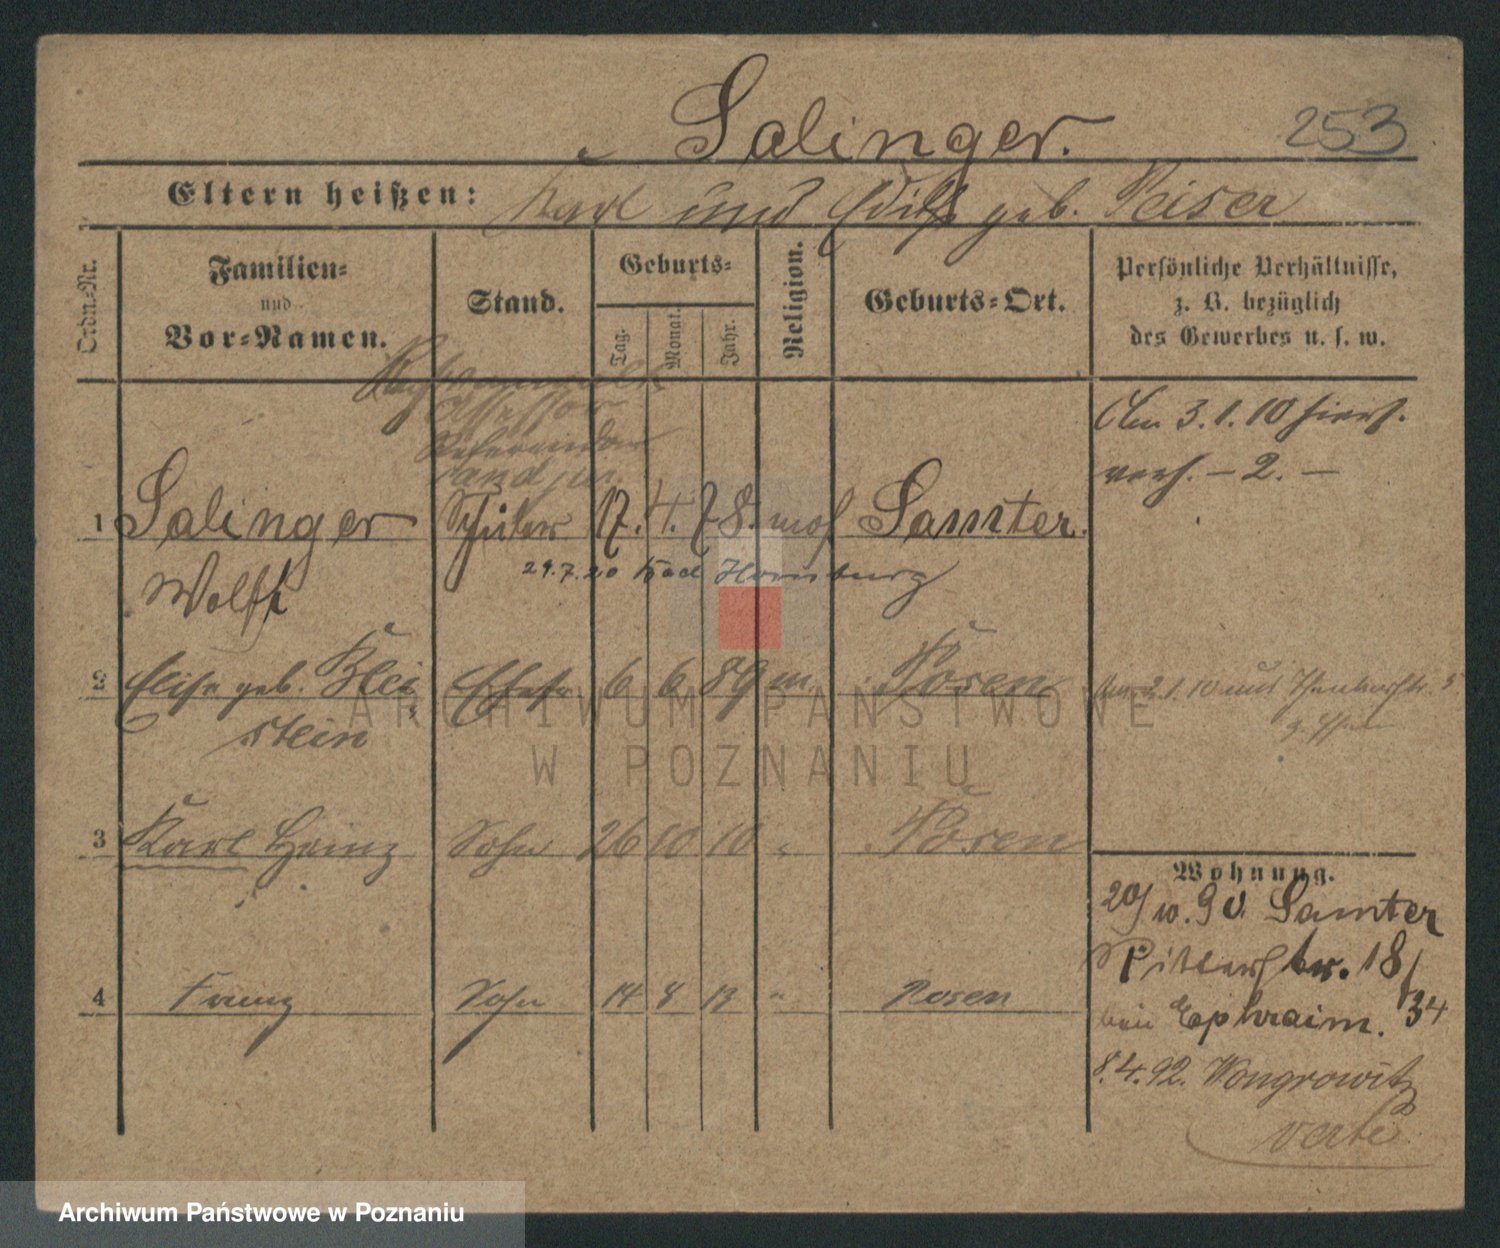 Salinger.
253
Eltern heißen: Karl und Edith geb. Peiser
Ordn.-Nr.
Familien-
und
Vor-Namen.
Stand.
Geburts-
Tag.
Monat.
Jahr.
Religion.
Geburts-Ort.
Persönliche Verhältnisse,
z. B. bezüglich
des Gewerbes u. s. w.
Rechtsanwalt
Assessor
Referendar
cand jur.
1 Salinger Schüler 17. 4. 78. mos Samter.
Wolff
29.7.20 Bad Homburg
Am 3.1.10 hiers.
verh. – 2. –
2 Elise geb. Klei Ehefr. 6 6 89 m. Posen
stein
3 Karl Heinz Sohn 26 10 10 " Posen
4 Franz Sohn 14 8 13 " Posen
Wohnung.
20/10.90. Samter
Ritterstr. 18/
bei Ephraim. 34
8.4.92. Wongrowitz
verte
ARCHIWUM PAŃSTWOWE
W POZNANIU
Archiwum Państwowe w Poznaniu